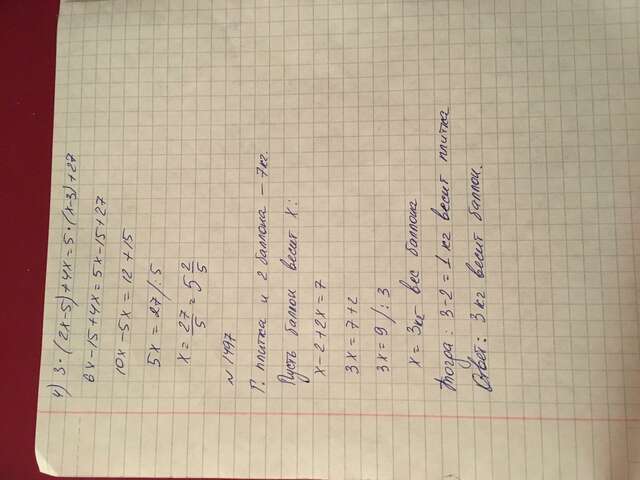 4) 3·(2x-5)+4x=5·(x-3)+27
6x-15+4x=5x-15+27
10x-5x=12+15
5x=27/:5
x=27/5=5 2/5
N 1497
Г. плитка и 2 баллона - 7кг.
Пусть баллон весит x:
x-2+2x=7
3x=7+2
3x=9/:3
x=3кг вес баллона
Тогда: 3-2=1 кг весит плитка
Ответ: 3 кг весит баллон.